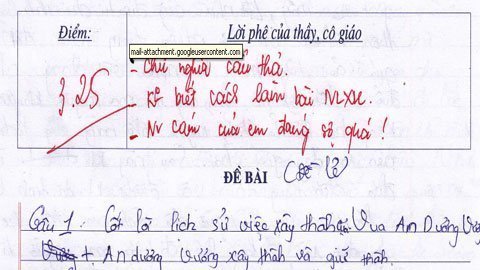 Điểm:
Lời phê của thầy, cô giáo
mail-attachment.googleusercontent.com
- Chữ nghĩa cẩu thả.
3.25
- Ko biết cách làm bài NLXH.
- Nv cảm của em đáng sợ quá!
ĐỀ BÀI
Câu 1: Cốt lõi lịch sử việc xây thành của Vua An Dương Vương
+ An dương vương xây thành và giữ thành.